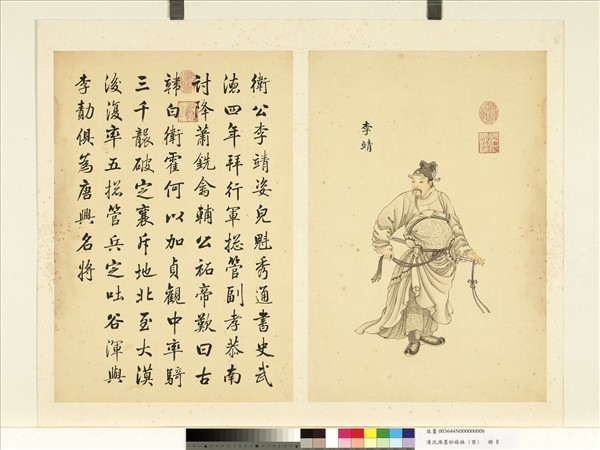 李靖
衛公李靖姿皃魁秀通書史武
德四年拜行軍摠管副孝恭南
討降蕭銑禽輔公祏帝歎曰古
韓白衛霍何以加貞觀中率騎
三千襲破定襄斥地北至大漠
後復率五摠管兵定吐谷渾與
李勣俱為唐興名將
故畫 003644N000000008
清沈源墨妙珠林（酉） 冊 8